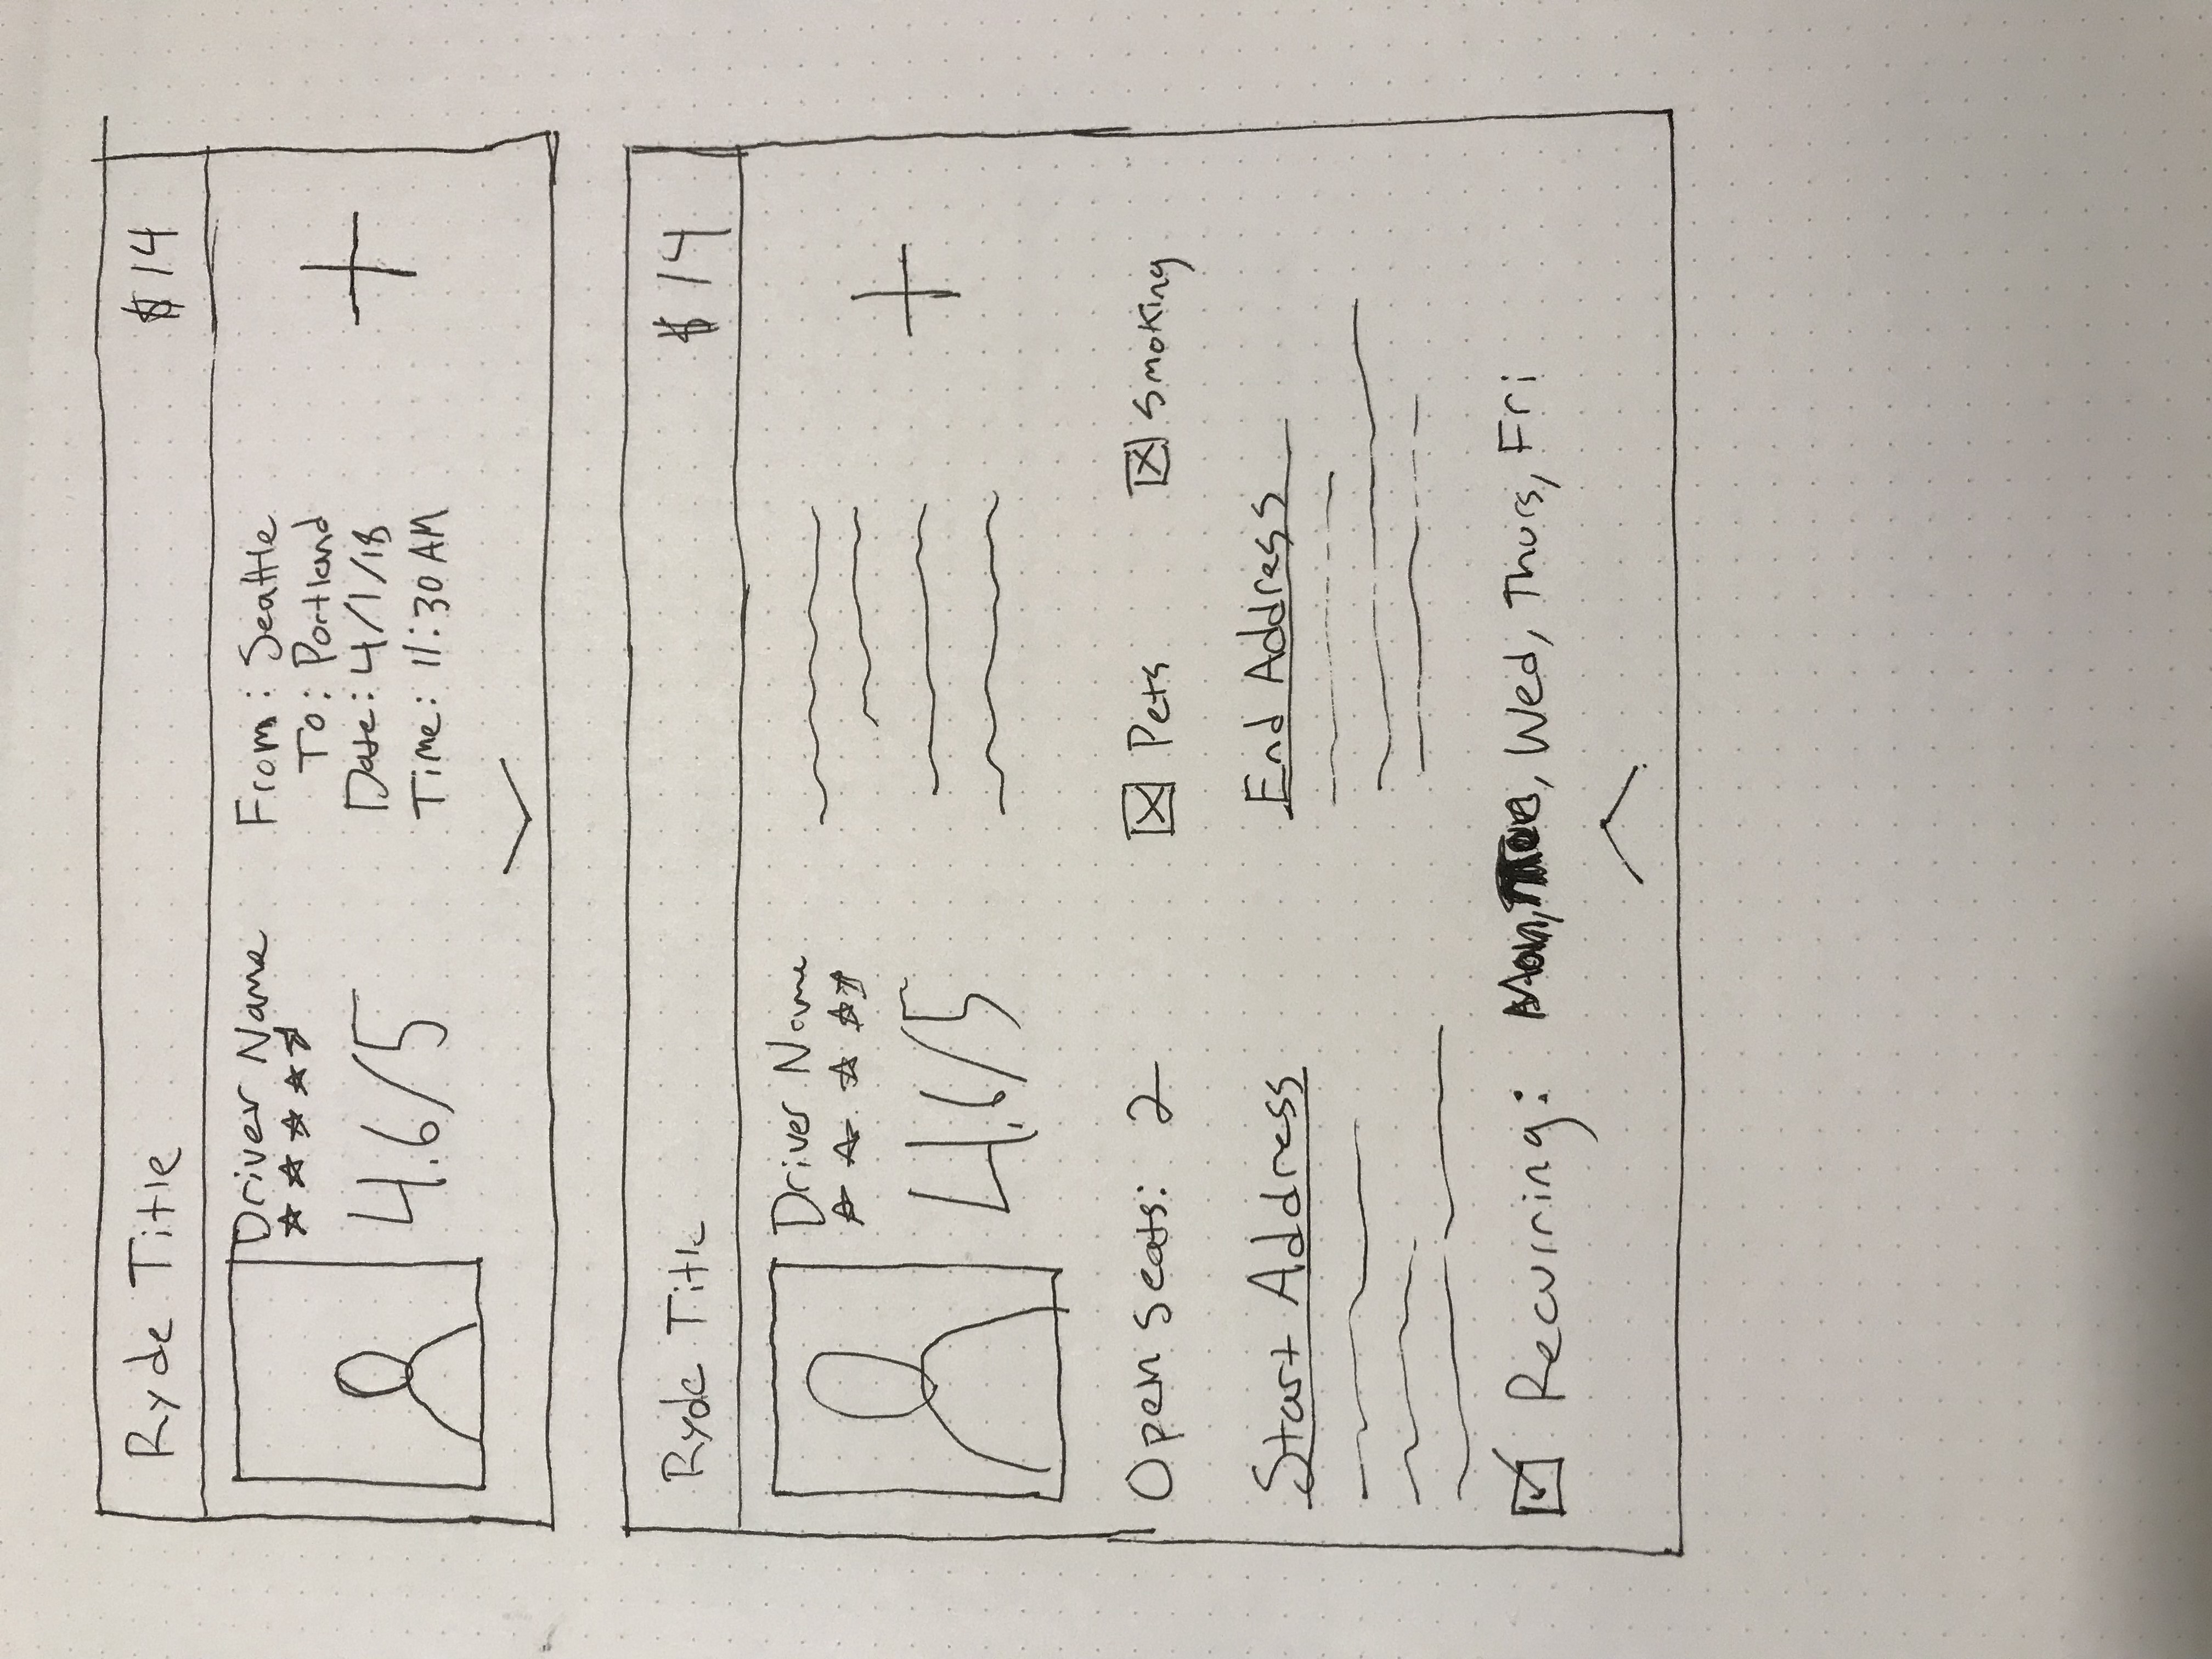 Ryde Title $14
Driver Name
4.6/5
From: Seattle
To: Portland
Date: 4/1/18
Time: 11:30 AM
Ryde Title $14
Driver Name
4.6/5
Open seats: 2
Pets
Smoking
Start Address
End Address
Recurring: Mon, Tue, Wed, Thurs, Fri